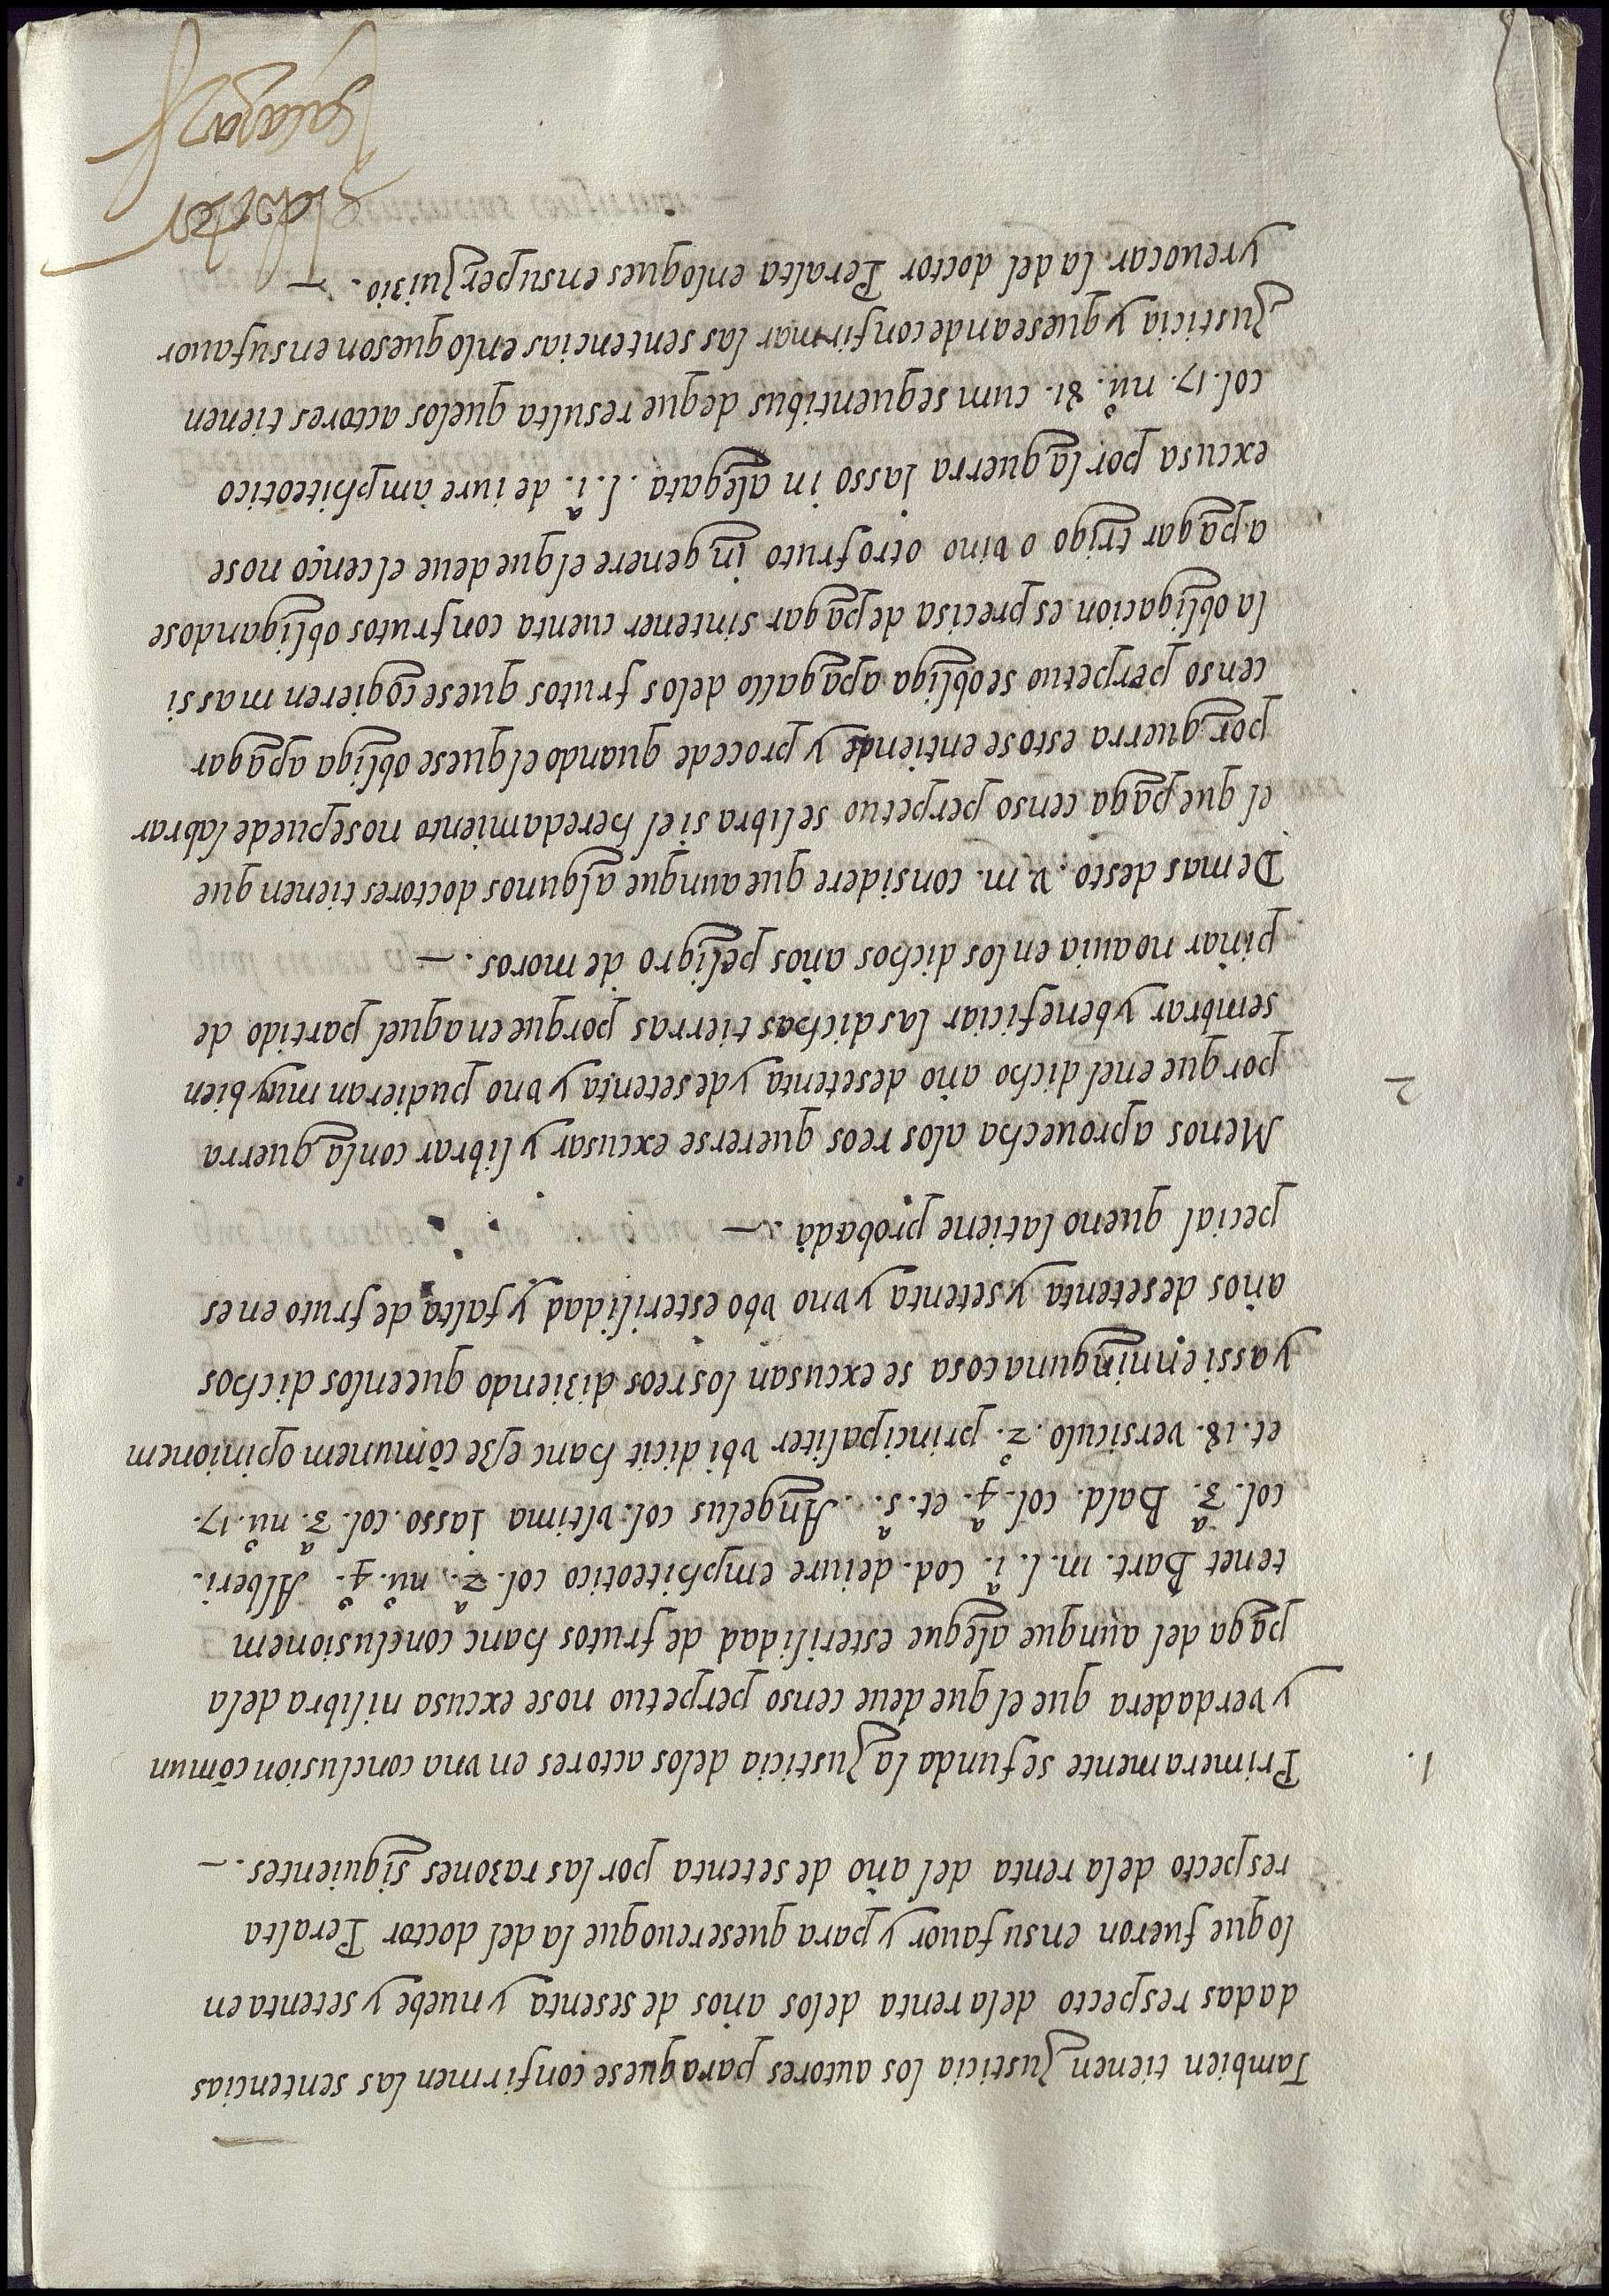 Tambien tienen Justicia los autores paraquese confirmen las sentencias
dadas respecto delarenta delos años de sesenta y nuebe y setenta en
lo que fueron ensufauor y para queserevoque la del doctor Peralta
respecto dela renta del año de setenta por las razones siguientes. –
1. Primeramente se funda la Justicia delos actores en vna conclusion comun
y verdadera que el que deue censo perpetuo nose excusa nilibra dela
paga del aunque alegue esterilidad de frutos hanc conclusionem
tenet Bart. in. l. i.ª Cod. de iure emphiteotico col. 2.ª nu.º 4.º Alberi.
col. 3.ª Bald. col. 4.ª et. 5.ª Angelus col. vltima Jasso. col. 3.ª nu.º 17.
et. 18. versiculo. 2.º principaliter vbi dicit hanc esse comunem opinionem
y assi en ninguna cosa se excusan los reos diziendo que enlos dichos
años desetenta y setenta y vno vbo esterilidad y falta de fruto en es
pecial que no latiene probada. –
2 Menos aprouecha alos reos quererse excusar y librar conla guerra
porque enel dicho año desetenta y desetenta y vno pudieran muy bien
sembrar y beneficiar las dichas tierras porque en aquel partido de
piñar no auia enlos dichos años peligro de moros. –
Demas desto. v. m. considere que aunque algunos doctores tienen que
el que paga censo perpetuo selibra si el heredamiento nosepuede labrar
por guerra esto se entiende y procede quando el quese obliga apagar
censo perpetuo seobliga apagallo delos frutos que se cogieren mas si
la obligacion es precisa depagar sintener cuenta con frutos obligandose
apagar trigo o vino otro fruto in genere el que deue el censo nose
excusa por la guerra Jasso in alegata. l. i.ª de iure amphiteotico
col. 17. nu.º 81. cum sequentibus deque resulta quelos actores tienen
Justicia y que se an de confirmar las sentencias enlo que son ensufauor
y reuocar la del doctor Peralta enloques ensuperjuizio. –